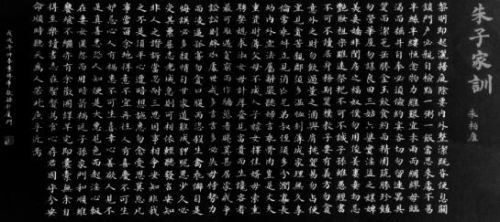 朱子家訓
朱柏廬
黎明即起灑掃庭除要內外整潔既昏便息關
鎖門戶必親自檢點一粥一飯當思來處不易
半絲半縷恆念物力維艱宜未雨而綢繆毋臨
渴而掘井自奉必須儉約宴客切勿留連器具
質而潔瓦缶勝金玉飲食約而精園蔬勝珍饈
勿營華屋勿謀良田三姑六婆實淫盜之媒婢
美妾嬌非閨房之福奴僕勿用俊美妻妾切忌
艷妝祖宗雖遠祭祀不可不誠子孫雖愚經書
不可不讀居身務期質樸教子要有義方勿貪
意外之財勿飲過量之酒與肩挑貿易勿佔便
宜見貧苦親鄰須多溫恤刻薄成家理無久享
倫常乖舛立見消亡兄弟叔姪須多分潤寡長
幼內外宜法肅辭嚴聽婦言乖骨肉豈是丈夫
重貲財薄父母不成人子嫁女擇佳婿毋索重
聘娶媳求淑女毋計厚奩見富貴而生讒容者
最可恥遇貧窮而作驕態者賤莫甚居家戒爭
訟訟則終凶處世戒多言言多必失毋恃勢力
而凌逼孤寡勿貪口腹而恣殺生禽乖僻自是
悔誤必多頹惰自甘家道難成狎暱惡少久必
受其累屈志老成急則可相依輕聽發言安知
非人之譖訴當忍耐三思因事相爭安知非我
之不是須平心遭暗想施惠勿念受恩莫忘凡
事當留餘地得意不宜再往人有喜慶不可生
妒忌心人有禍患不可生喜幸心善欲人見不
是真善惡恐人知便是大惡見色而起淫心報
在妻女匿怨而用暗箭禍延子孫家門和順雖
饔飧不繼亦有餘歡國課早完即囊橐無餘自
得至樂讀書志在聖賢為官心存君國守分安
命順時聽天為人若此庶乎近焉